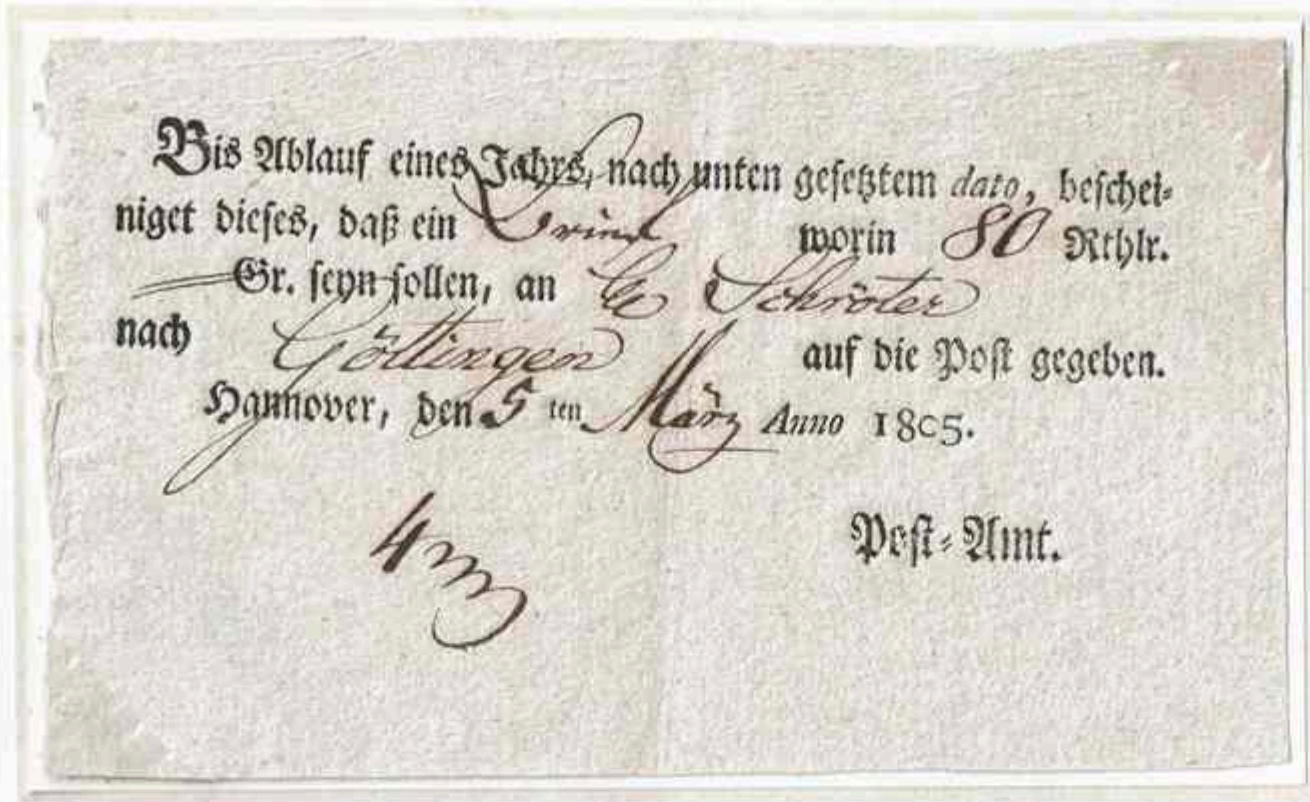 Bis Ablauf eines Jahrs, nach unten gesetztem dato, beschei-
niget dieses, daß ein Brief worin 80 Rthlr.
Gr. seyn sollen, an Schröter
nach Göttingen auf die Post gegeben.
Hannover, den 5 ten März Anno 1805.
4
Post-Amt.